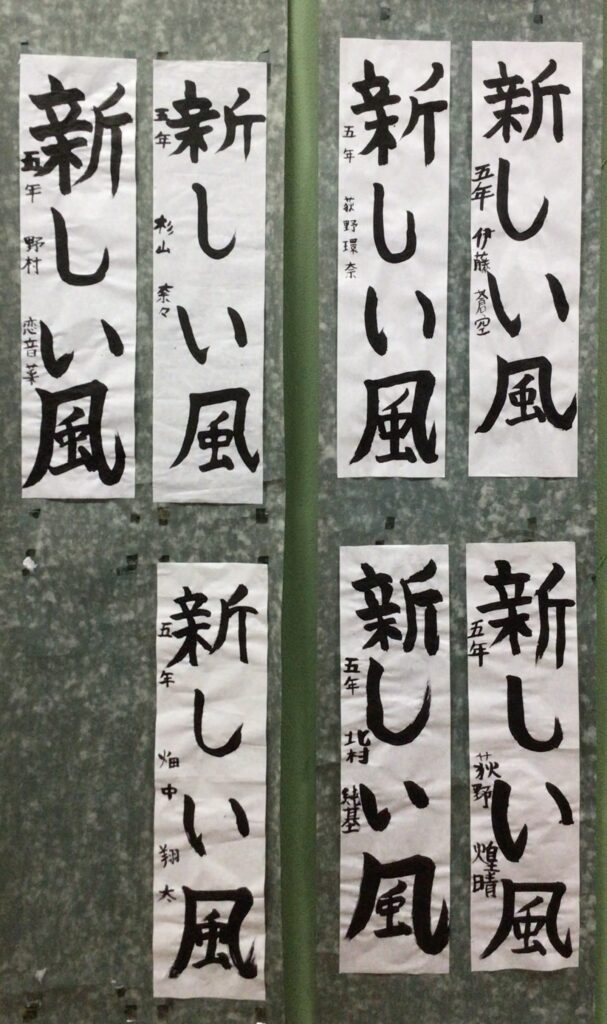 新しい風
五年 伊藤 蒼空
新しい風
五年 荻野環奈
新しい風
五年 杉山 奈々
新しい風
五年 野村 恋音菜
新しい風
五年 荻野 煌晴
新しい風
五年 北村 純基
新しい風
五年 畑中 翔太